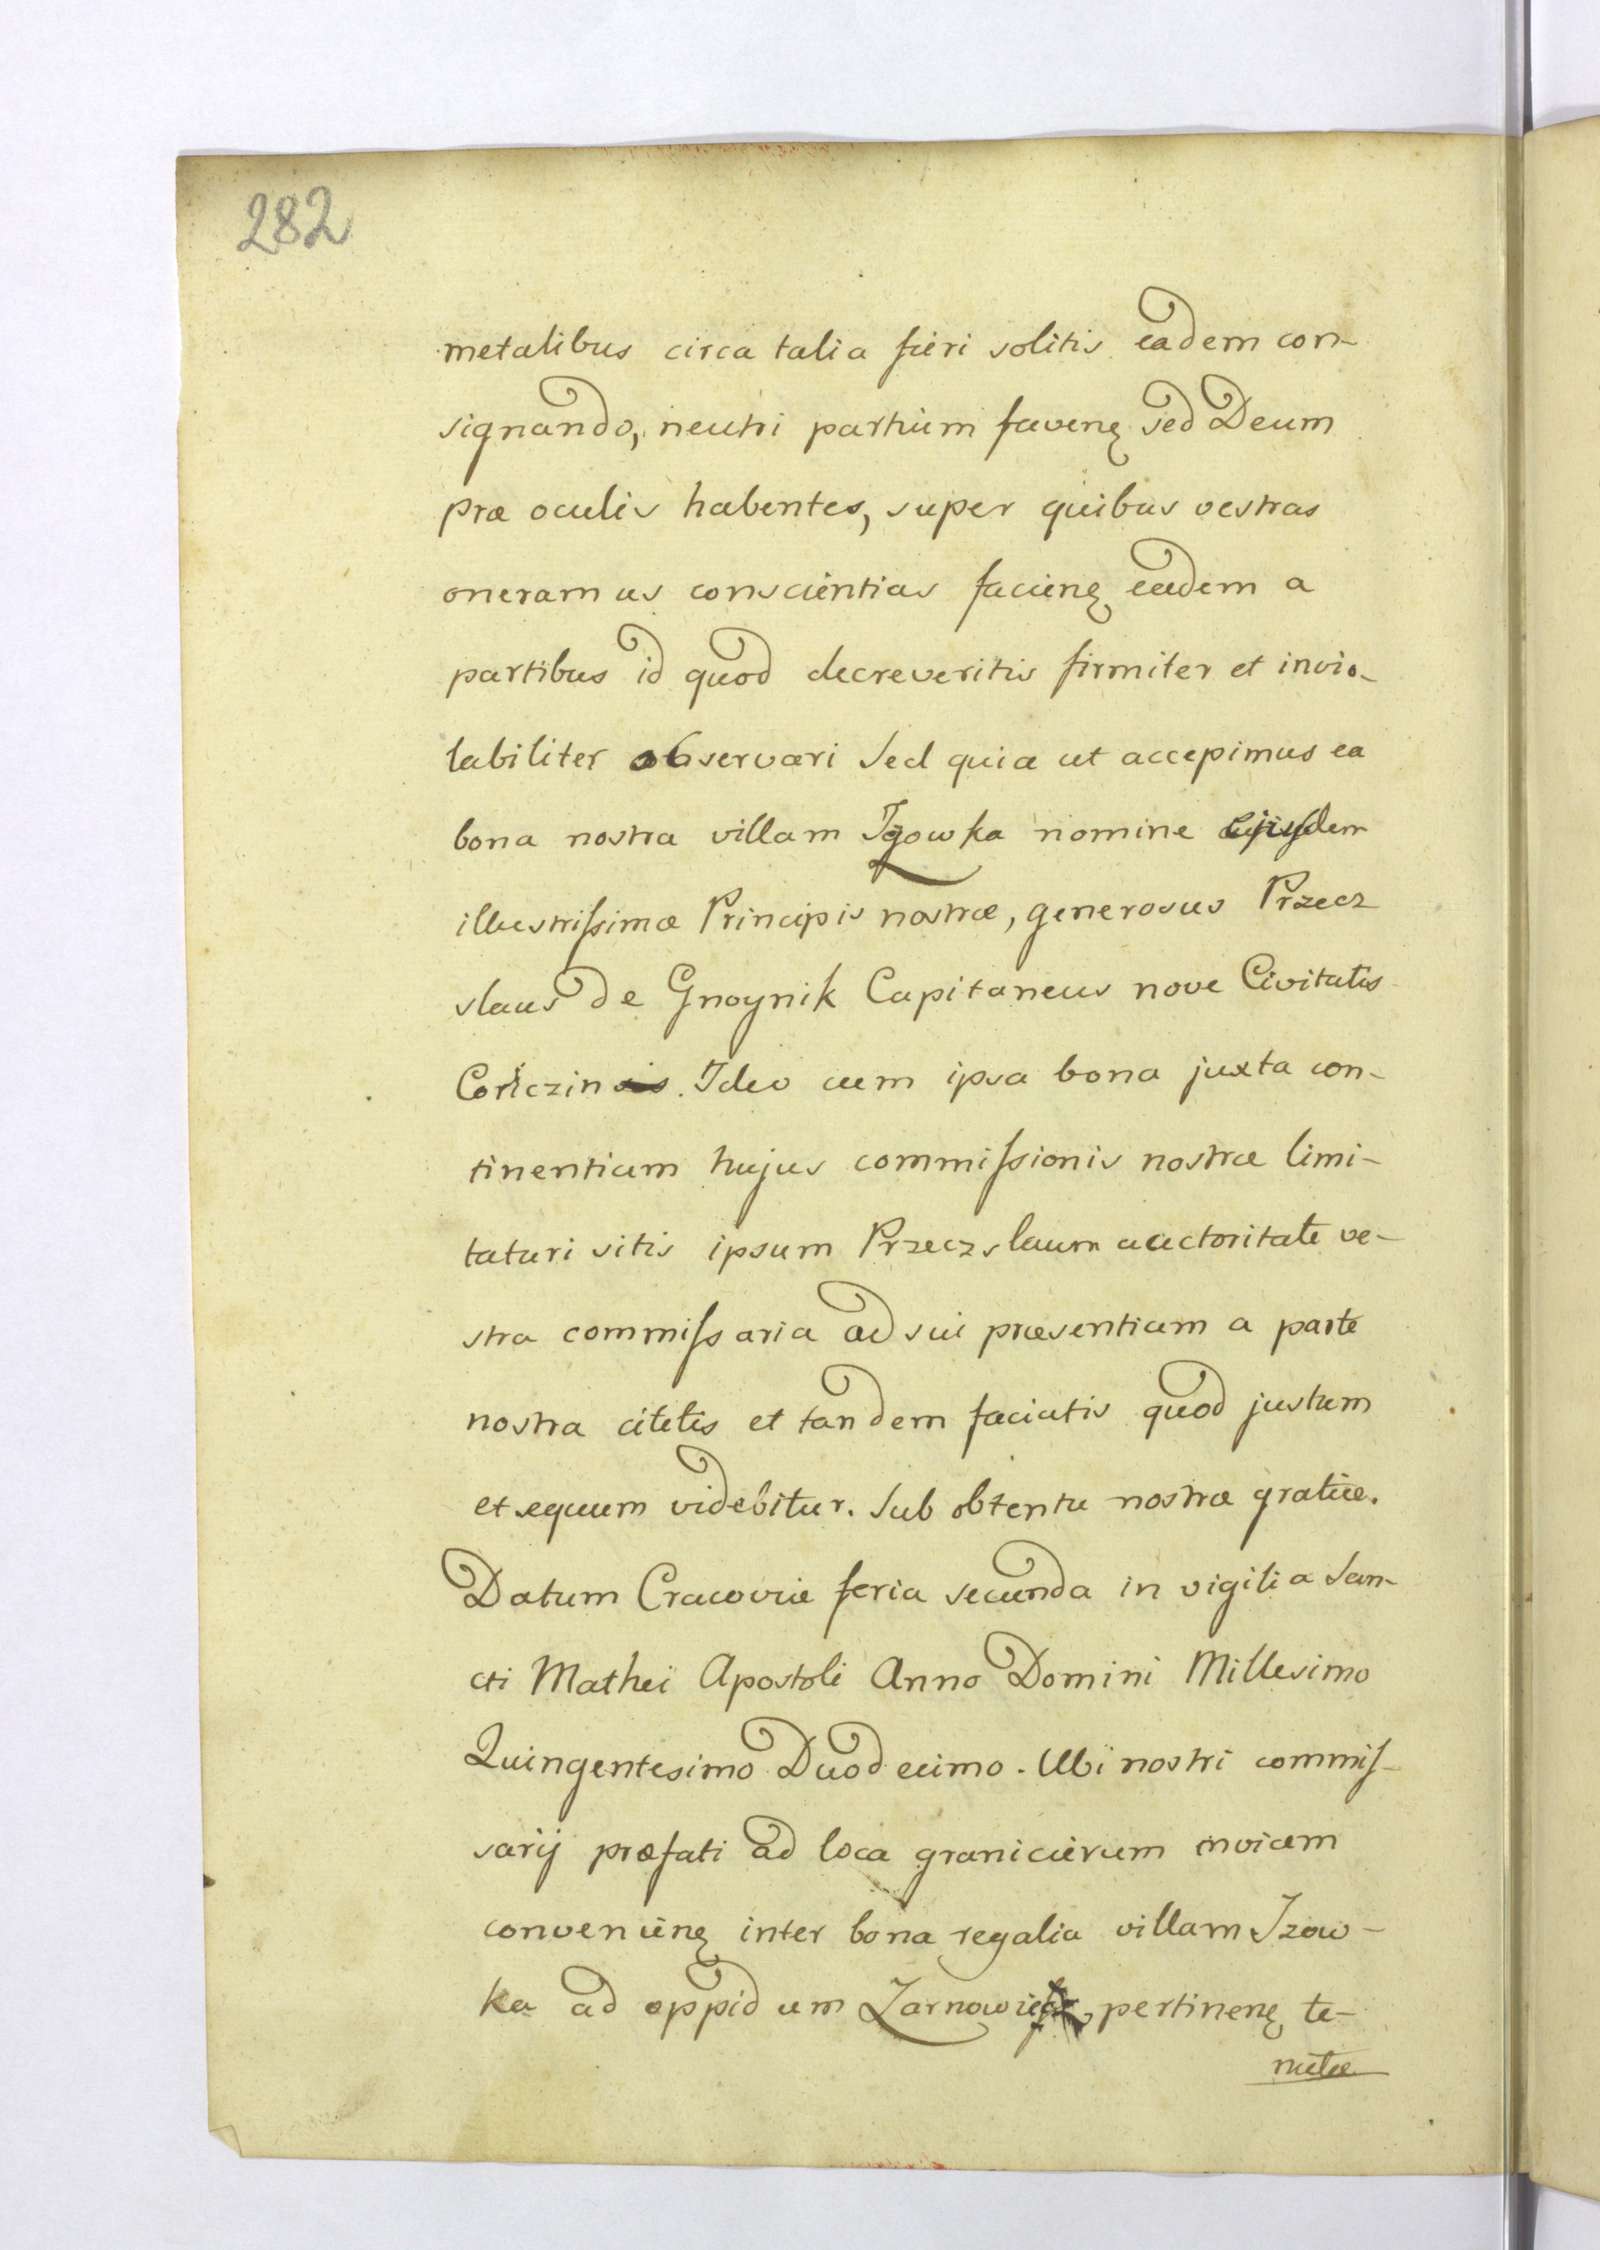 282
metalibus circa talia fieri solitis eadem con-
signando, neutri partium favenȩ sed Deum
præ oculis habentes, super quibus vestras
oneramus conscientias facienȩ eadem a
partibus id quod decreveritis firmiter et invio-
labiliter observari Sed quia ut accepimus ea
bona nostra villam Izowka nomine ejusdem
illustrissimæ Principis nostræ, generosus Przecz
slaus de Gnoynik Capitaneus nove Civitatis
Corczin. Ideo cum ipsa bona juxta con-
tinentiam hujus commissionis nostræ limi-
taturi sitis ipsum Przeczslaum auctoritate ve-
stra commissaria ad sui præsentiam a parte
nostra citetis et tandem faciatis quod justum
et equum videbitur. Sub obtentu nostræ gratiæ.
Datum Cracoviæ feria secunda in vigilia San-
cti Mathei Apostoli Anno Domini Millesimo
Quingentesimo Duodecimo. Ubi nostri commis-
sarij præfati ad loca granicierum invicem
convenienȩ inter bona regalia villam Izow-
ka ad oppidum Zarnowiecz pertinenȩ te-
nutæ